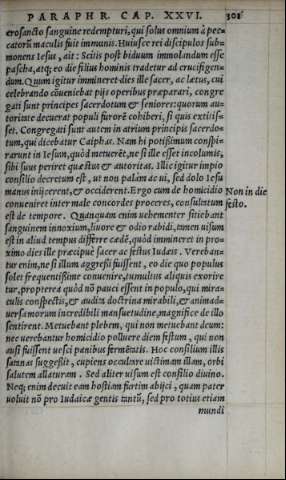 PARAPHR. CAP. XXVI. 301
crosancto sanguine redempturi, qui solus omnium à pec-
catorũ maculis fuit immunis. Huiusce rei discipulos sub-
monens Iesus, ait: Scitis post biduum immolandum esse
pascha, atq; eo die filius hominis tradetur ad crucifigen-
dum. Quum igitur immineret dies ille sacer, ac lætus, cui
celebrando cõueniebat pijs operibus præparari, congre
gati sunt principes sacerdotum & seniores: quorum au-
toritate decuerat populi furorẽ cohiberi, si quis extitis-
set. Congregati sunt autem in atrium principis sacerdo-
tum, qui dicebatur Caiphas. Nam hi potißimum conspi-
rarunt in Iesum, quòd metuerẽt, ne si ille esset incolumis,
sibi suus periret quæstus & autoritas. Illic igitur impio
consilio decretum est, ut non palàm ac ui, sed dolo Iesu
manus inijcerent, & occiderent. Ergo cum de homicidio Non in die
conueniret inter male concordes proceres, consultatum festo.
est de tempore. Quanquam enim uehementer sitiebant
sanguinem innoxium, liuore & odio rabidi, tamen uisum
est in aliud tempus differre cædẽ, quòd immineret in pro-
ximo dies ille præcipuè sacer ac festus Iudæis. Vereban-
tur enim, ne si illum aggreßi fuissent, eo die quo populus
solet frequentißime conuenire, tumultus aliquis exorire
tur, propterea quòd nõ pauci essent in populo, qui mira-
culis conspectis, & audita doctrina mirabili, & animad-
uersa morum incredibili mansuetudine, magnifice de illo
sentirent. Metuebant plebem, qui non metuebant deum:
nec uerebantur homicidio polluere diem festum, qui non
ausi fuissent uesci panibus fermẽtatis. Hoc consilium illis
satanas suggeßit, cupiens occulere uictimam illam, orbi
salutem allaturam. Sed aliter uisum est consilio diuino.
Neq; enim decuit eam hostiam furtim abijci, quam pater
uoluit nõ pro Iudaicæ gentis tantũ, sed pro totius etiam
mundi